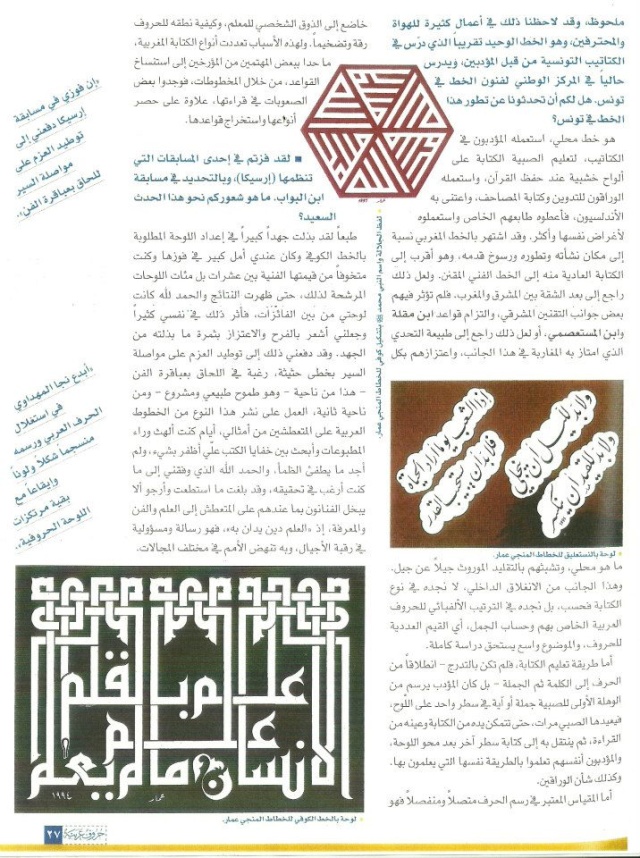 ملحوظ، وقد لاحظنا ذلك في أعمال كثيرة للهواة
والمحترفين، وهو الخط الوحيد تقريباً الذي درّس في
الكتاتيب التونسية من قبل المؤدبين، ويدرس
حالياً في المركز الوطني لفنون الخط في
تونس. هل لكم أن تحدثونا عن تطور هذا
الخط في تونس؟
هو خط محلي، استعمله المؤدبون في
الكتاتيب، لتعليم الصبية الكتابة على
ألواح خشبية عند حفظ القرآن، واستعمله
الوراقون للتدوين وكتابة المصاحف، واعتنى به
الأندلسيون، فأعطوه طابعهم الخاص واستعملوه
لأغراض نفسها وأكثر. وقد اشتهر بالخط المغربي نسبة
إلى مكان نشأته وتطوره ورسوخ قدمه، وهو أقرب إلى
الكتابة العادية منه إلى الخط الفني المقنن. ولعل ذلك
راجع إلى بعد الشقة بين المشرق والمغرب. فلم تؤثر فيهم
بعض جوانب التقنين المشرقي، والتزام قواعد ابن مقلة
وابن المستعصمي، أو لعل ذلك راجع إلى طبيعة التحدي
الذي امتاز به المغاربة في هذا الجانب، واعتزازهم بكل
ولا بد لليل أن ينجلي
ولا بد للقيد أن ينكسر
إذا الشعب يوما أراد الحياة
فلا بد أن يستجيب القدر
لوحة بالنستعليق للخطاط المنجي عمار.
ما هو محلي، وتشبثهم بالتقليد الموروث جيلاً عن جيل.
وهذا الجانب من الانغلاق الداخلي، لا نجده في نوع
الكتابة فحسب، بل نجده في الترتيب الألفبائي للحروف
العربية الخاص بهم وحساب الجمل، أي القيم العددية
للحروف، والموضوع واسع يستحق دراسة كاملة.
أما طريقة تعليم الكتابة، فلم تكن بالتدرج - انطلاقاً من
الحرف إلى الكلمة ثم الجملة - بل كان المؤدب يرسم من
الوهلة الأولى للصبية جملة أو آية في سطر واحد على اللّوح،
فيعيدها الصبي مرات، حتى تتمكن يده من الكتابة وعينه من
القراءة، ثم ينتقل به إلى كتابة سطر آخر بعد محو اللوحة،
والمؤدبون أنفسهم تعلموا بالطريقة نفسها التي يعلمون بها.
وكذلك شأن الوراقين.
أما المقياس المعتبر في رسم الحرف متصلاً ومنفصلاً فهو
خاضع إلى الذوق الشخصي للمعلم، وكيفية نطقه للحروف
رقة وتضخيماً. ولهذه الأسباب تعددت أنواع الكتابة المغربية،
ما حدا ببعض المهتمين من المؤرخين إلى استنساخ
القواعد، من خلال المخطوطات، فوجدوا بعض
الصعوبات في قراءتها، علاوة على حصر
أنواعها واستخراج قواعدها.
لفظ الجلالة واسم النبي محمد ﷺ بتشكيل كوفي للخطاط المنجي عمار.
■ لقد فزتم في إحدى المسابقات التي
تنظمها (إرسيكا)، وبالتحديد في مسابقة
ابن البواب. ما هو شعوركم نحو هذا الحدث
السعيد؟
طبعاً لقد بذلت جهداً كبيراً في إعداد اللوحة المطلوبة
بالخط الكوفي وكان عندي أمل كبير في فوزها وكنت
متخوفاً من قيمتها الفنية بين عشرات بل مئات اللوحات
المرشحة لذلك، حتى ظهرت النتائج والحمد لله كانت
لوحتي من بين الفائزات، فأثر ذلك في نفسي كثيراً
وجعلني أشعر بالفرح والاعتزاز بثمرة ما بذلته من
الجهد. وقد دفعني ذلك إلى توطيد العزم على مواصلة
السير بخطى حثيثة، رغبة في اللحاق بعباقرة الفن
- هذا من ناحية - وهو طموح طبيعي ومشروع - ومن
ناحية ثانية، العمل على نشر هذا النوع من الخطوط
العربية على المتعطشين من أمثالي، أيام كنت ألهث وراء
المطبوعات وأبحث بين خفايا الكتب علّي أظفر بشيء، ولم
أجد ما يطفئ الظمأ، والحمد الله الذي وفقني إلى ما
كنت أرغب في تحقيقه، وقد بلغت ما استطعت وأرجو ألا
يبخل الفنانون بما عندهم على المتعطش إلى العلم والفن
والمعرفة، إذ «العلم دين يدان به»، فهو رسالة ومسؤولية
في رقبة الأجيال، وبه تنهض الأمم في مختلف المجالات.
علم بالقلم
علم
الانسان ما لم يعلم
عمار
١٩٩٤
لوحة بالخط الكوفي للخطاط المنجي عمار.
«إن فوزي في مسابقة
إرسيكا دفعني إلى
توطيد العزم على
مواصلة السير
للحاق بعباقرة الفن»
«أبدع نجا المهداوي
في استغلال
الحرف العربي ورسمه
منسجماً شكلاً ولوناً
وإيقاعاً مع
بقية مرتكزات
اللوحة الحروفية»
حروف عربية
٢٧